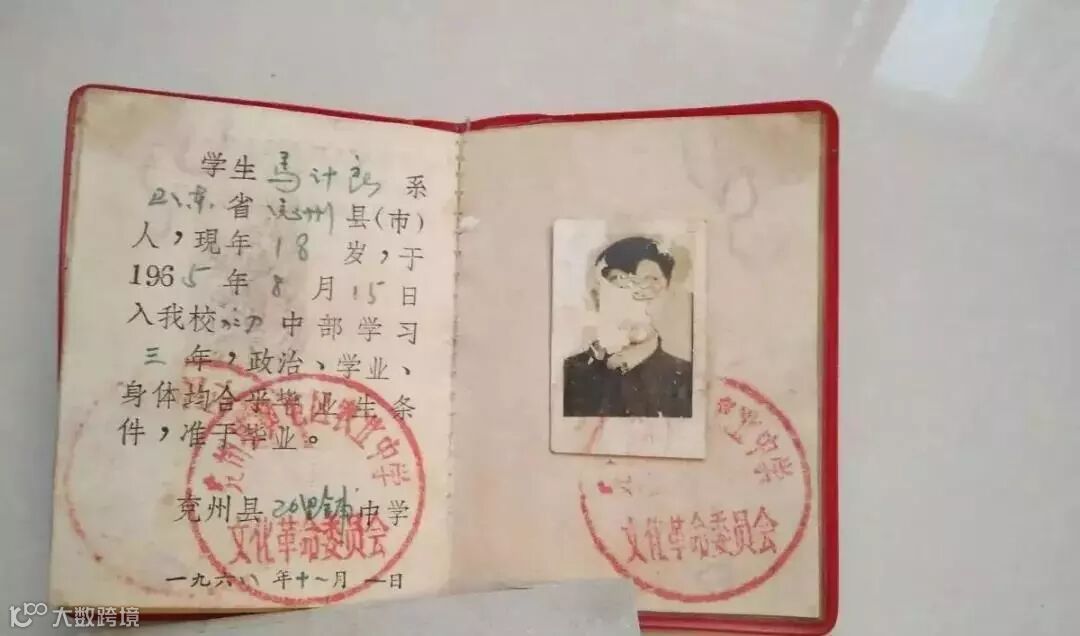 学生马计良系
山东省兖州县(市)
人，现年18岁，于
1965年8月15日
入我校初中部学习
三年，政治、学业、
身体均合乎毕业生条
件，准于毕业。
兖州县20里铺中学
文化革命委员会
一九六八年十一月一日
中学
文化革命委员会
大数跨境